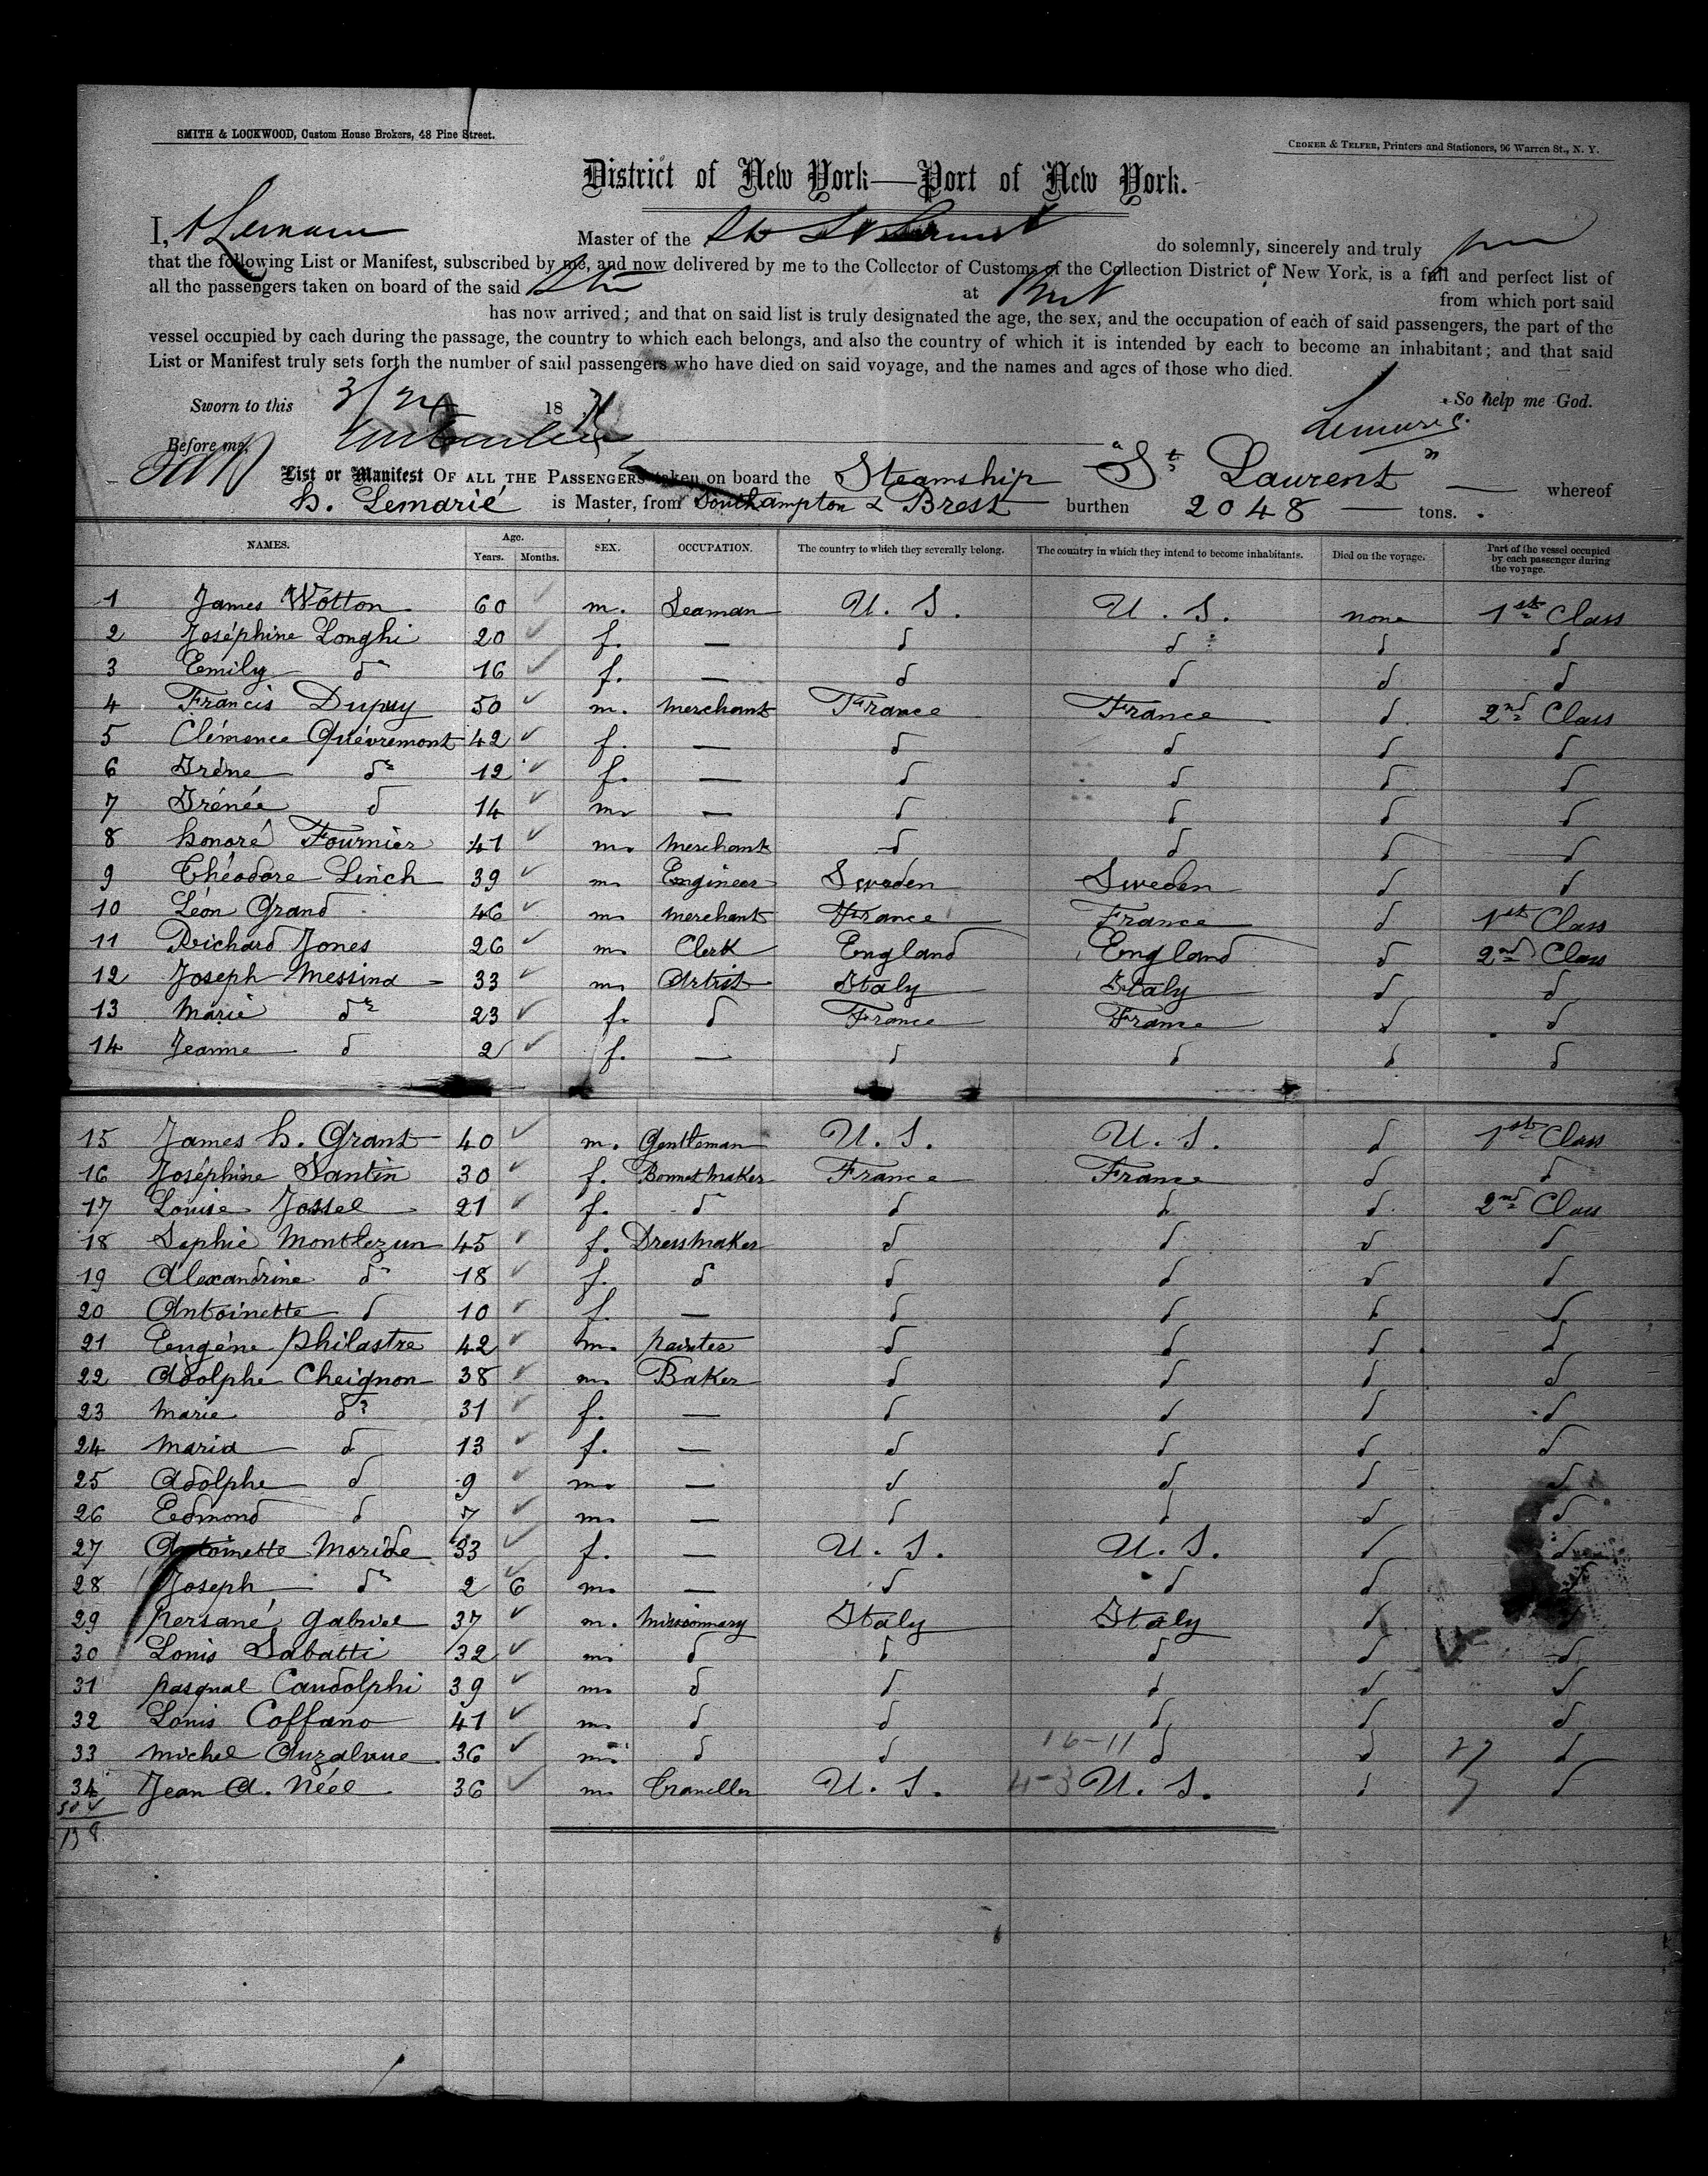 SMITH & LOCKWOOD, Custom House Brokers, 48 Pine Street.
CROKER & TELFER, Printers and Stationers, 96 Warren St., N. Y.
District of New York—Port of New York.
I, Master of the do solemnly, sincerely and truly
that the following List or Manifest, subscribed by me, and now delivered by me to the Collector of Customs of the Collection District of New York, is a full and perfect list of
all the passengers taken on board of the said at Brest from which port said
has now arrived; and that on said list is truly designated the age, the sex, and the occupation of each of said passengers, the part of the
vessel occupied by each during the passage, the country to which each belongs, and also the country of which it is intended by each to become an inhabitant; and that said
List or Manifest truly sets forth the number of said passengers who have died on said voyage, and the names and ages of those who died.
Sworn to this 3/24 1871 So help me God.
Before me,
List or Manifest OF ALL THE PASSENGERS taken on board the Steamship "St Laurent" whereof
h. Lemarié is Master, from Southampton & Brest burthen 2048 tons.
NAMES. Age. Years. Months. SEX. OCCUPATION. The country to which they severally belong. The country in which they intend to become inhabitants. Died on the voyage. Part of the vessel occupied by each passenger during the voyage.
1 James Wotton 60 m. Seaman U. S. U. S. none 1st Class
2 Joséphine Longhi 20 f. — d d d d
3 Emily do 16 f. — d d d d
4 Francis Dupuy 50 m. merchant France France d 2nd Class
5 Clémence Quévremont 42 f. — d d d d
6 Iréne do 12 f. — d d d d
7 Irénée d 14 m. — d d d d
8 honoré Fournier 41 m. merchant d d d d
9 Théodore Linch 39 m. Engineer Sweden Sweden d d
10 Léon Grand 46 m. merchant France France d 1st Class
11 Richard Jones 26 m. Clerk England England d 2nd Class
12 Joseph Messina 33 m. Artist Italy Italy d d
13 Marie do 23 f. d France France d d
14 Jeanne d 2 f. — d d d d
15 James h. Grant 40 m. Gentleman U. S. U. S. d 1st Class
16 Joséphine Santin 30 f. Bonnet maker France France d d
17 Louise Jossel 21 f. d d d d 2nd Class
18 Sophie Montlezun 45 f. Dressmaker d d d d
19 Alexandrine do 18 f. d d d d d
20 Antoinette d 10 f. — d d d d
21 Eugéne Philastre 42 m. painter d d d d
22 Adolphe Cheignon 38 m. Baker d d d d
23 Marie do 31 f. — d d d d
24 Maria d 13 f. — d d d d
25 Adolphe d 9 m. — d d d d
26 Edmond d 7 m. — d d d d
27 Antoinette Moride 33 f. — U. S. U. S. d d
28 Joseph do 2 6 m. — d d d d
29 persané Gabriel 37 m. missionnary Italy Italy d d
30 Louis Sabatti 32 m. d d d d d
31 pasqual Candolphi 39 m. d d d d d
32 Louis Coffano 41 m. d d d d d
33 Michel 36 m. d d 16-11 d d 27 d
34 Jean A. Néel 36 m. Traveller U. S. 4-3 U. S. d 7 d